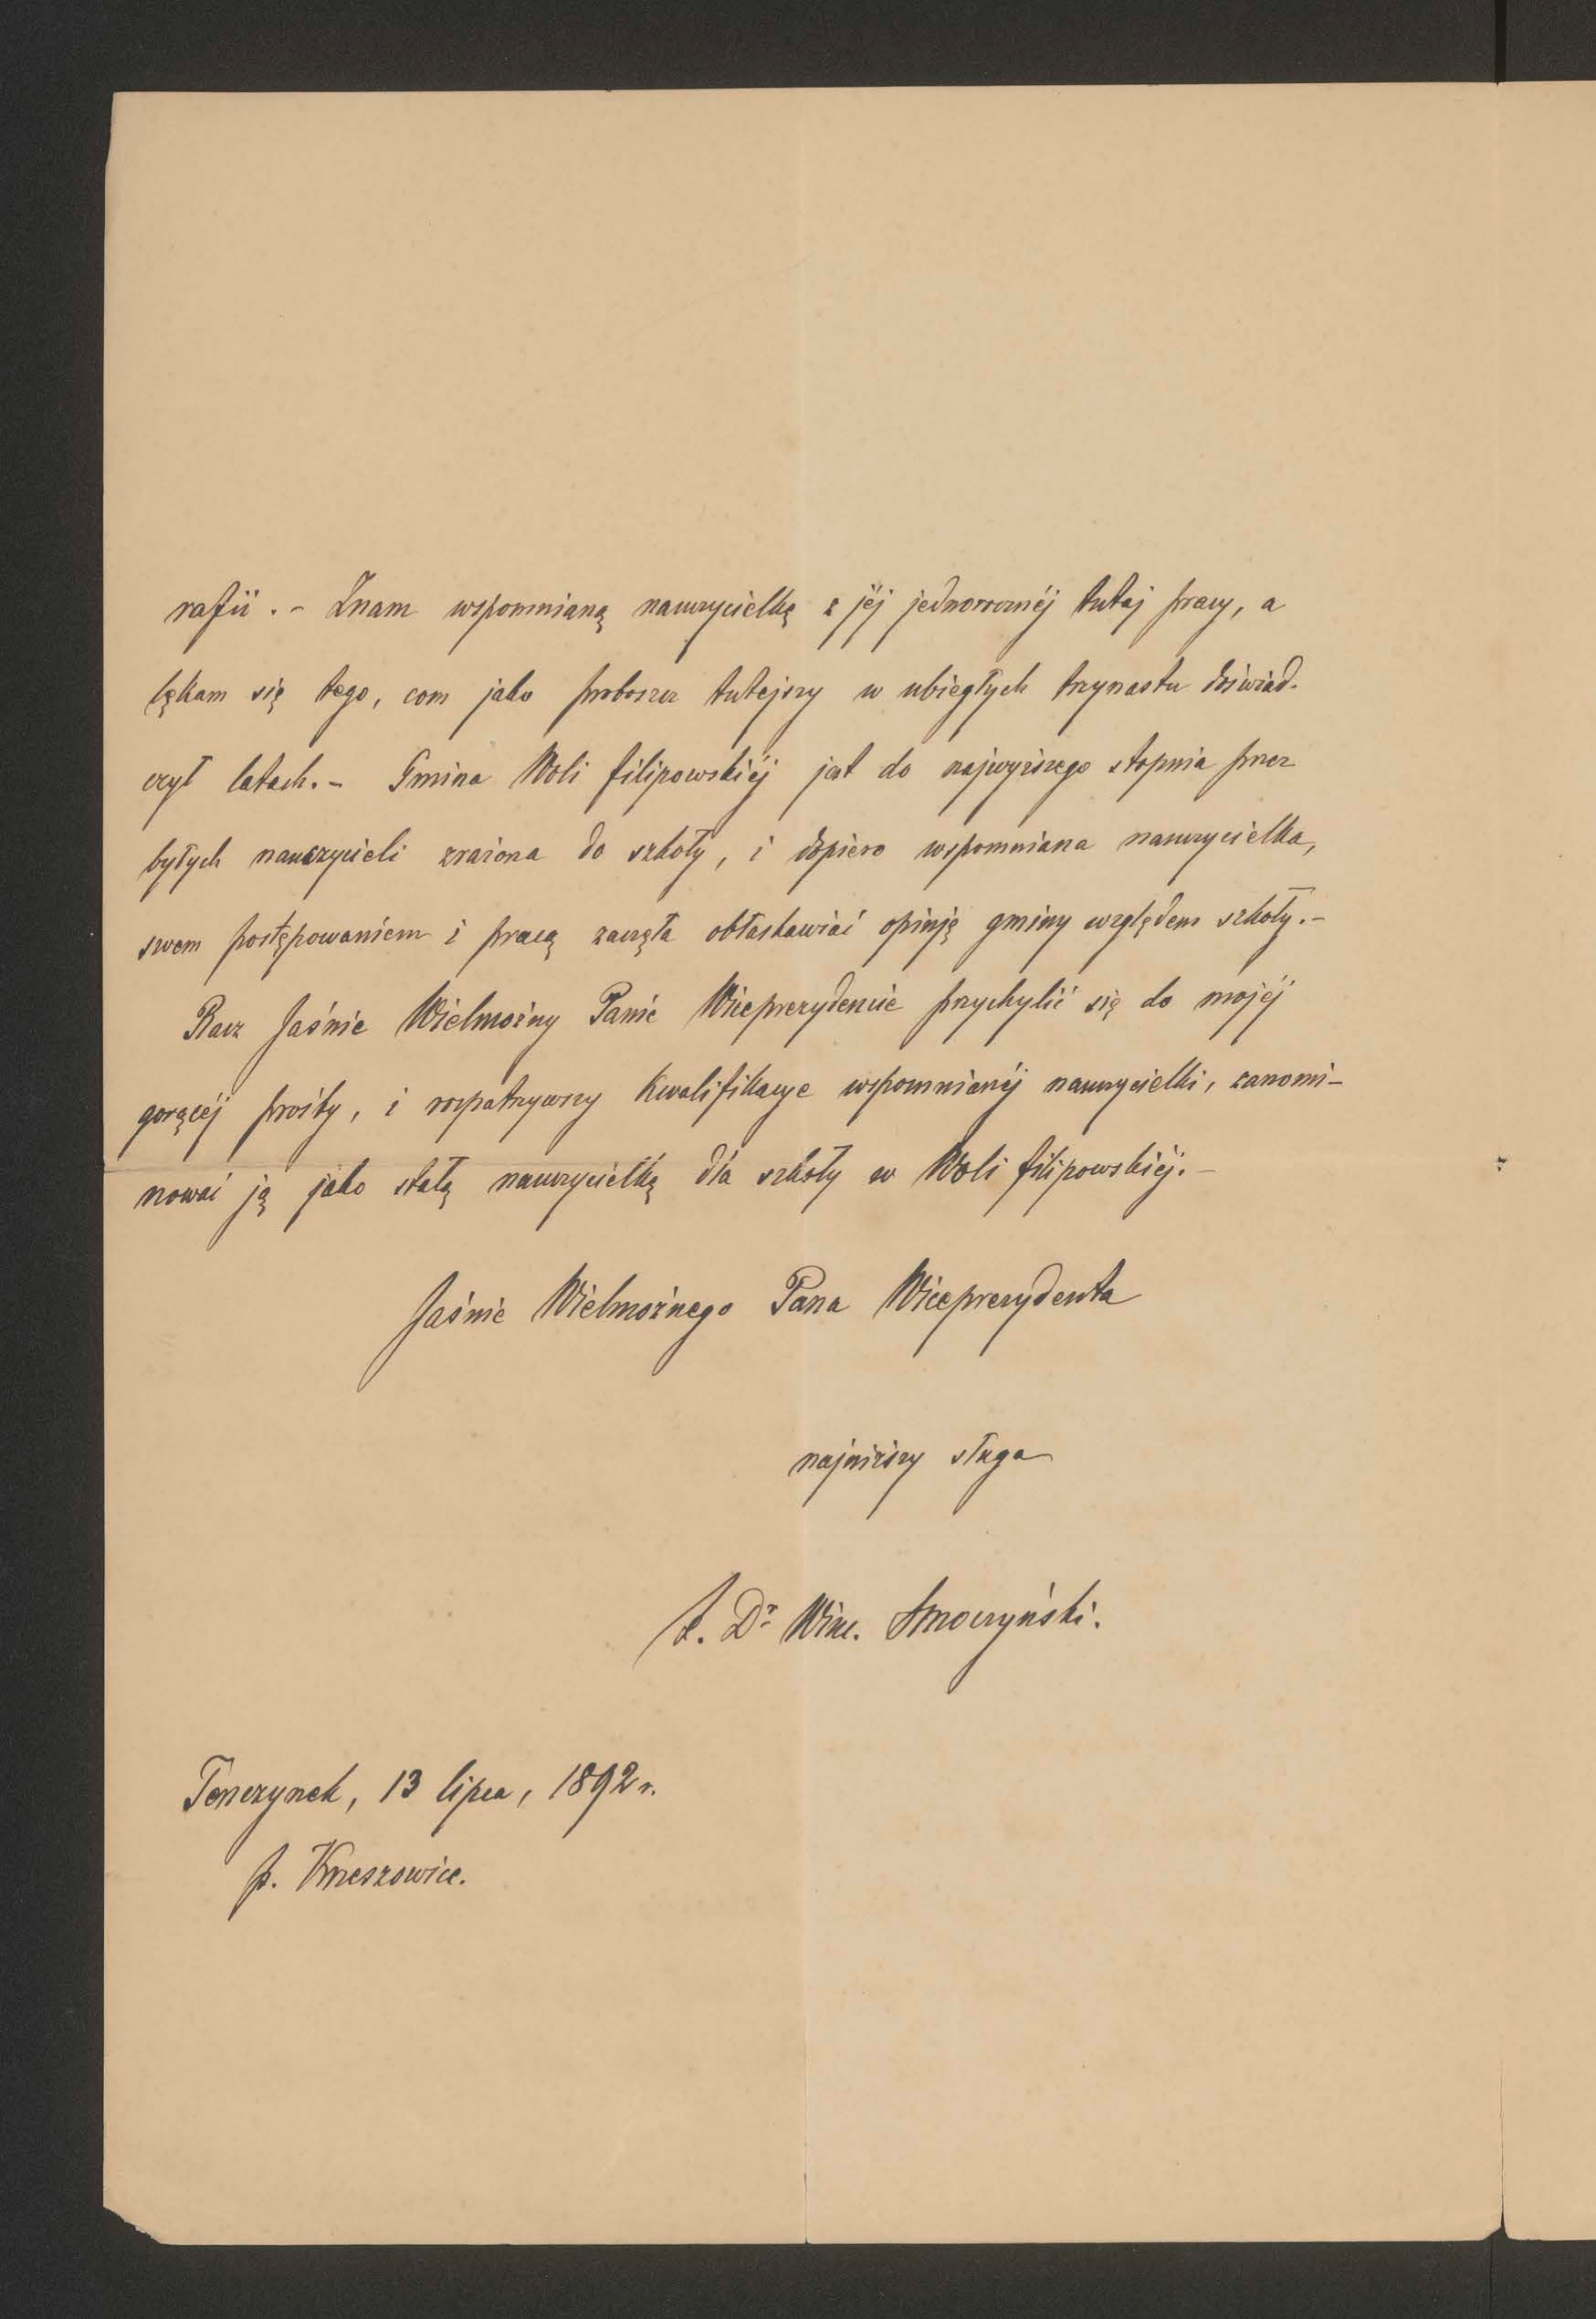 rafii. – Znam wspomnianą nauczycielkę z jéj jednorocznéj tutaj pracy, a
lękam się tego, com jako proboszcz tutejszy w ubiegłych trzynastu doświad-
czył latach. – Gmina Woli filipowskiéj jest do najwyższego stopnia przez
byłych nauczycieli zrażona do szkoły, i dopiero wspomniana nauczycielka,
swem postępowaniem i pracą zaczęła obłaskawiać opinję gminy względem szkoły. –
Racz Jaśnie Wielmożny Panie Wiceprezydencie przychylić się do mojéj
gorącéj prośby, i rozpatrzywszy kwalifikacye wspomnianéj nauczycielki, zanomi-
nować ją jako stałą nauczycielką dla szkoły w Woli filipowskiéj. –
Jaśnie Wielmożnego Pana Wiceprezydenta
najniższy sługa
X. Dr Winc. Smoczyński.
Tenczynek, 13 lipca, 1892 r.
p. Krzeszowice.